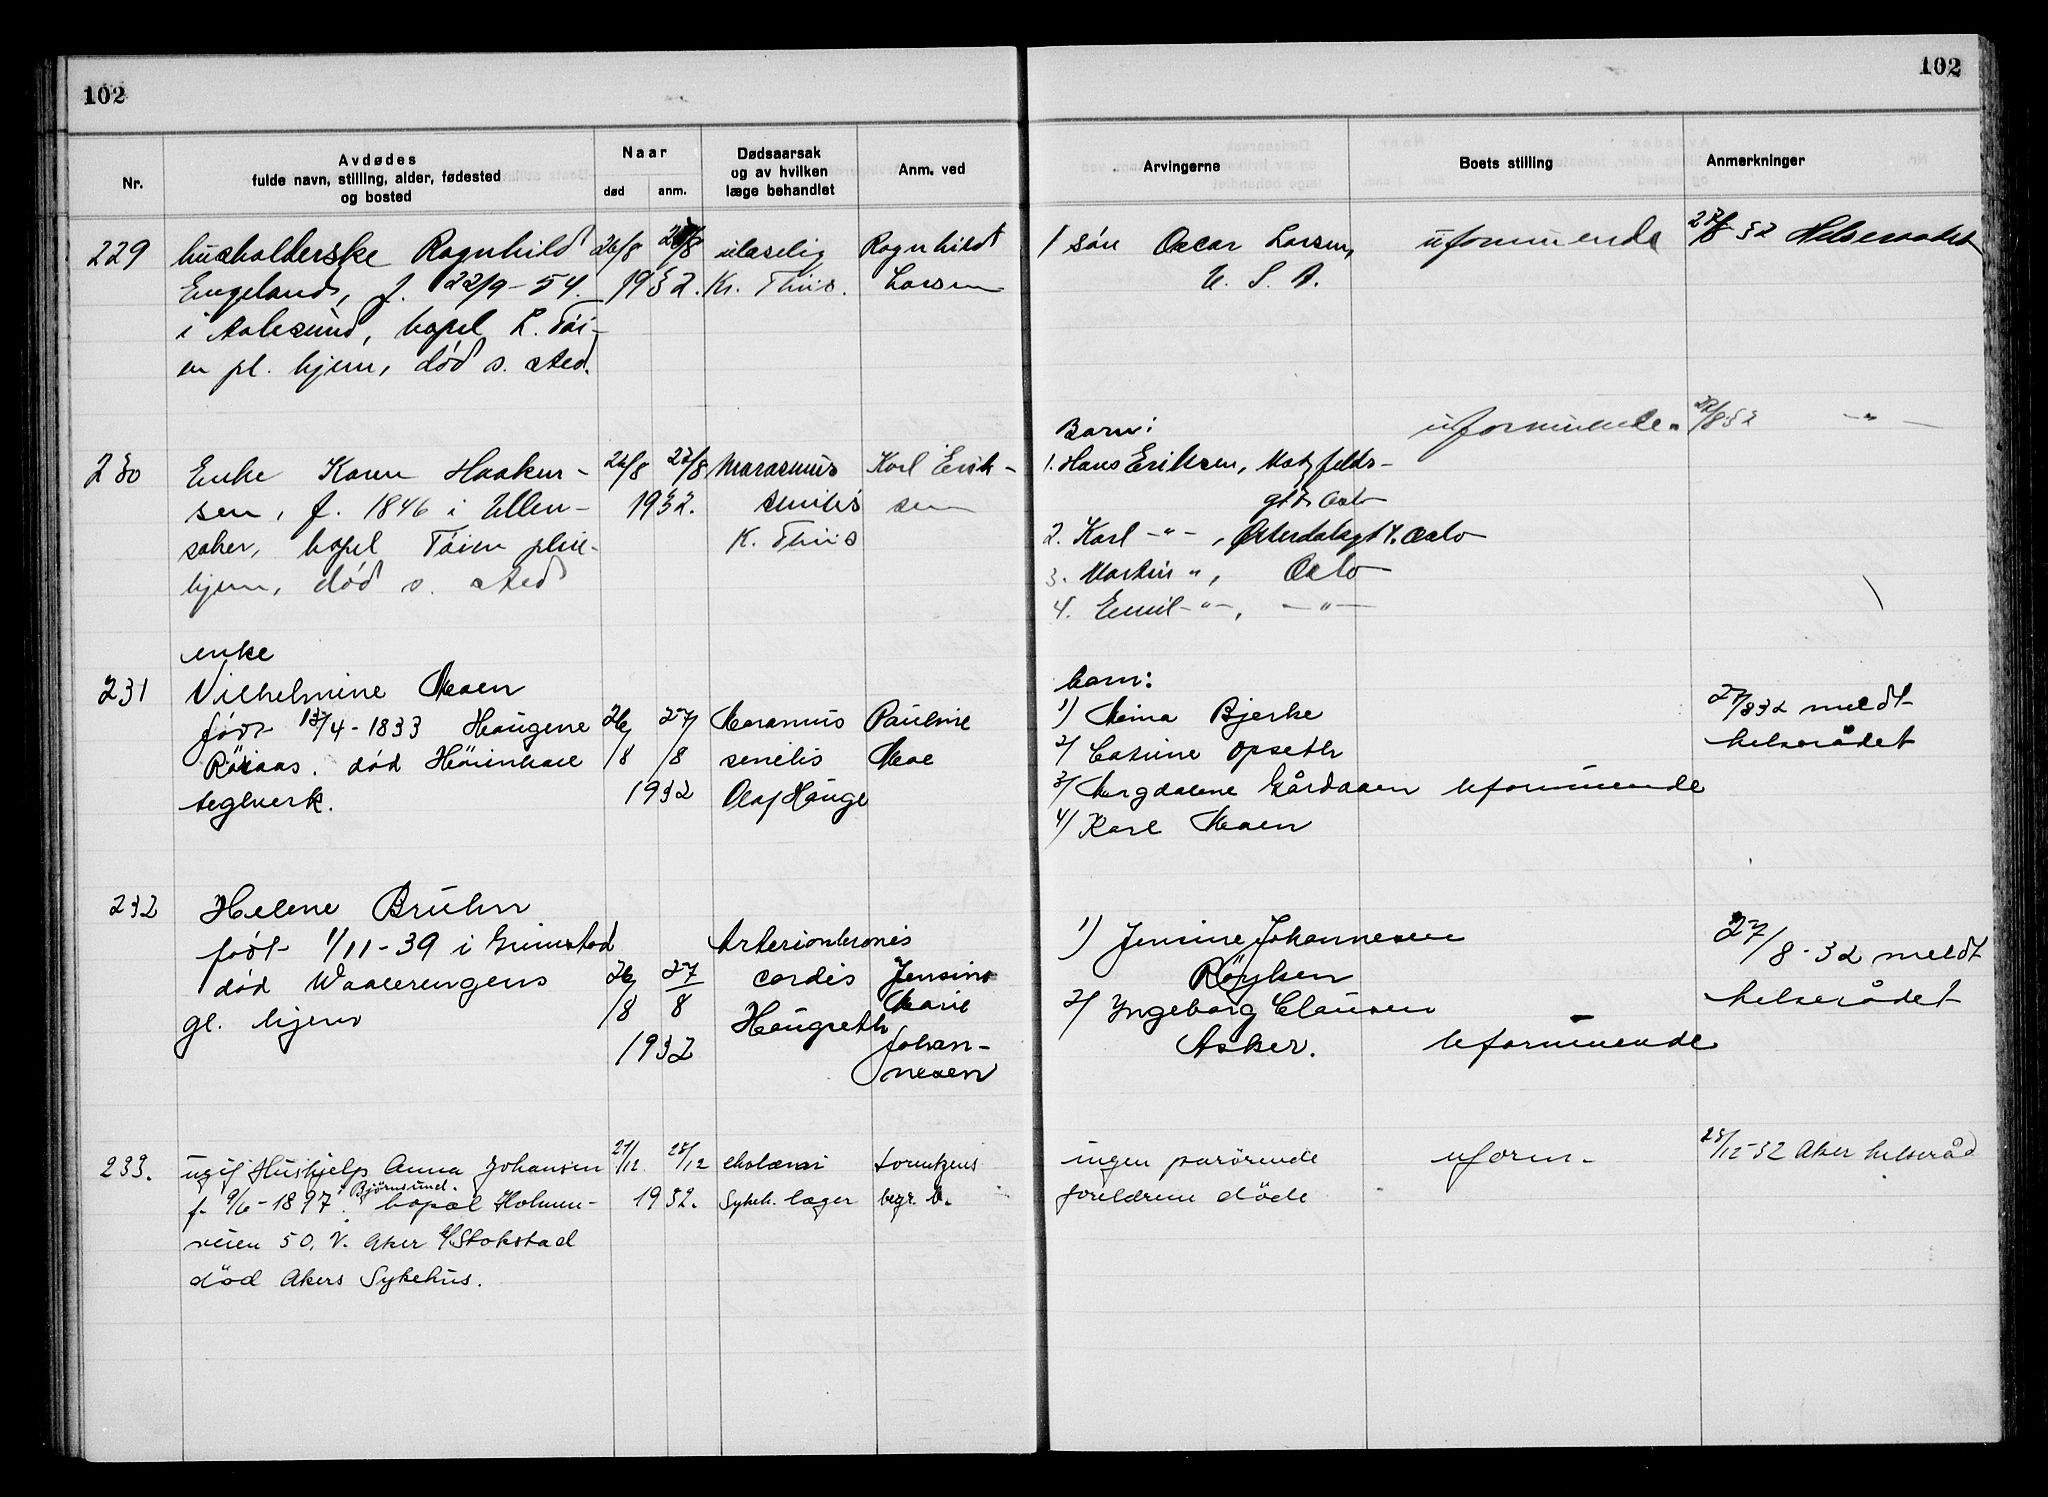 102
102
Nr.
Avdødes
fulde navn, stilling, alder, fødested
og bosted
Naar
død
anm.
Dødsaarsak
og av hvilken
læge behandlet
Anm. ved
Arvingerne
Boets stilling
Anmerkninger
229
husholderske Ragnhild
Engeland, f. 22/9-54
i Aalesund, bopel L. Töi-
en pl. hjem, død s. sted.
26/8
1932.
ulæselig
Kr. Thiis.
Ragnhild
Larsen
1 sön Oscar Larsen,
U. S. A.
uformuende
27/8 32 Helseraadet
230
Enke Karen Haaken-
sen, f. 1846 i Ullen-
saker, bopel Töien pleie-
hjem, død s. sted
26/8 27/8
1932.
Marasmus
senilis
K. Thiis
Karl Erik-
sen
Barn:
1. Hans Eriksen,
gt. 7, Oslo
2. Karl -"- , Østerdalsgt 4. Oslo
3. Martin " , Oslo
4. Emil -"- , -"-
uformuende.
27/8 32 -"-
231
enke
Vilhelmine Moen
født 13/4-1833 Haugene
Röraas. død Höienhall
teglverk.
26/8 27/8
1932
Marasmus
senilis
Olaf Hauge
Pauline
Moe
barn:
1) Mina Bjerke
2) Casine Opseth
3) Magdalene Gårdaaen
4) Karl Moen
Uformuende
27/8 32 meldt
helserådet
232
Helene Bruhn
født 1/11-39 i Grimstad
død Waalerengens
gl. hjem
26/8 27/8
1932
cordis
Haugseth
Jensine
Marie
Johan-
nesen
1) Jensine Johannesen
Røyken
2) Yngeborg Clausen
Asker.
Uformuende
27/8-32 meldt
helserådet
233.
ugif Hushjelp Anna Johansen
f. 9/6-1897 i Björnsund. bopæl Holmen-
veien 50. V. Aker c/o Stokstad
død Akers Sykehus.
21/12 28/12
1932.
Sykeh. læger
begr. b.
ingen parørende
foreldrene døde
uform-
28/12-32 Aker helseråd